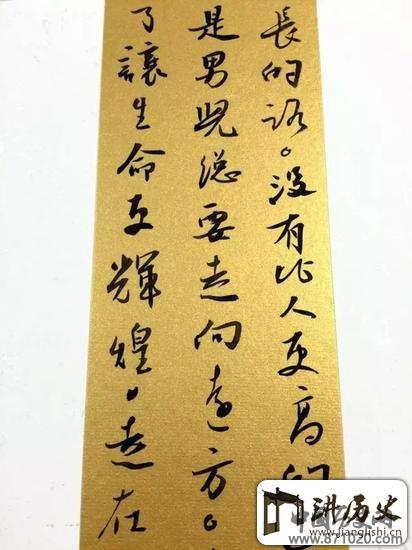 長的路。没有比人更高的
是男兒總要走向遠方。
了讓生命更輝煌。走在
讲历史
www.jianglishi.cn
www.871020.com